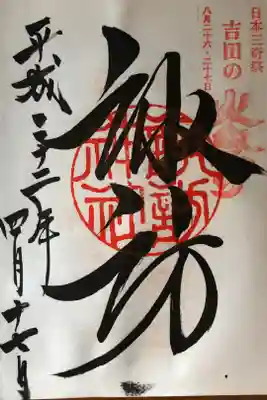 日本三奇祭
吉田の火祭
八月二十六・二十七日
諏訪
平成二十二年
四月十七日